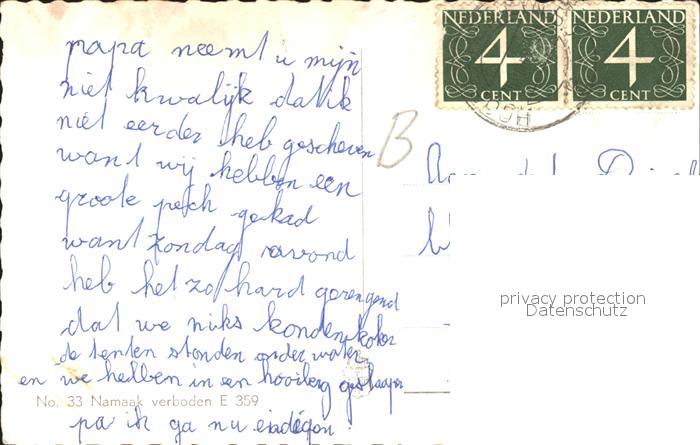 NEDERLAND NEDERLAND
4 4
CENT CENT
papa neemt u mijn
niet kwalijk dat ik
niet eerder heb gescheven
want wij hebben een
groote pech gekad
want zondag avond
heb het zo hard gerengend
dat we niks konden koken
de tenten stonden onder water
en we hebben in een hooiberg geslapen
pa ik ga nu eindigen
B
privacy protection
Datenschutz
No. 33 Namaak verboden E 359